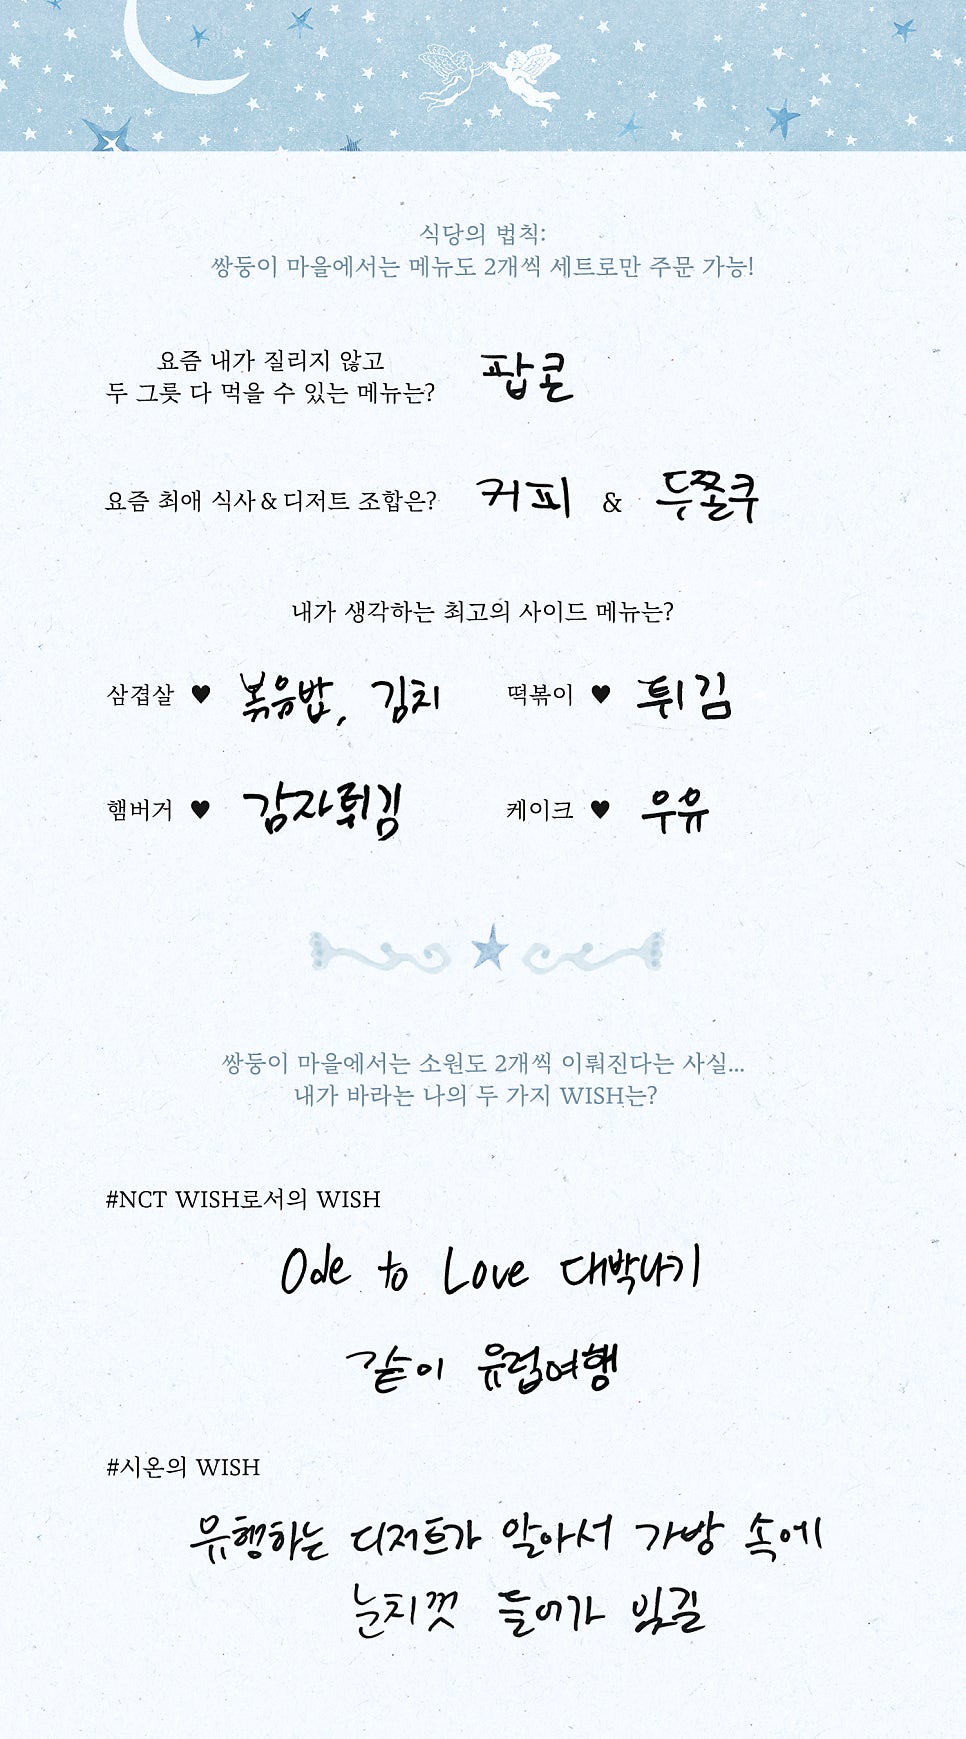 식당의 법칙:
쌍둥이 마을에서는 메뉴도 2개씩 세트로만 주문 가능!
요즘 내가 질리지 않고
두 그릇 다 먹을 수 있는 메뉴는?
팝콘
요즘 최애 식사 & 디저트 조합은? 커피 & 두쫄쿠
내가 생각하는 최고의 사이드 메뉴는?
삼겹살 ♥ 볶음밥, 김치
떡볶이 ♥ 튀김
햄버거 ♥ 감자튀김
케이크 ♥ 우유
쌍둥이 마을에서는 소원도 2개씩 이뤄진다는 사실...
내가 바라는 나의 두 가지 WISH는?
#NCT WISH로서의 WISH
Ode to Love 대박나기
같이 유럽여행
#시온의 WISH
유행하는 디저트가 알아서 가방 속에
눈치껏 들어가 있길